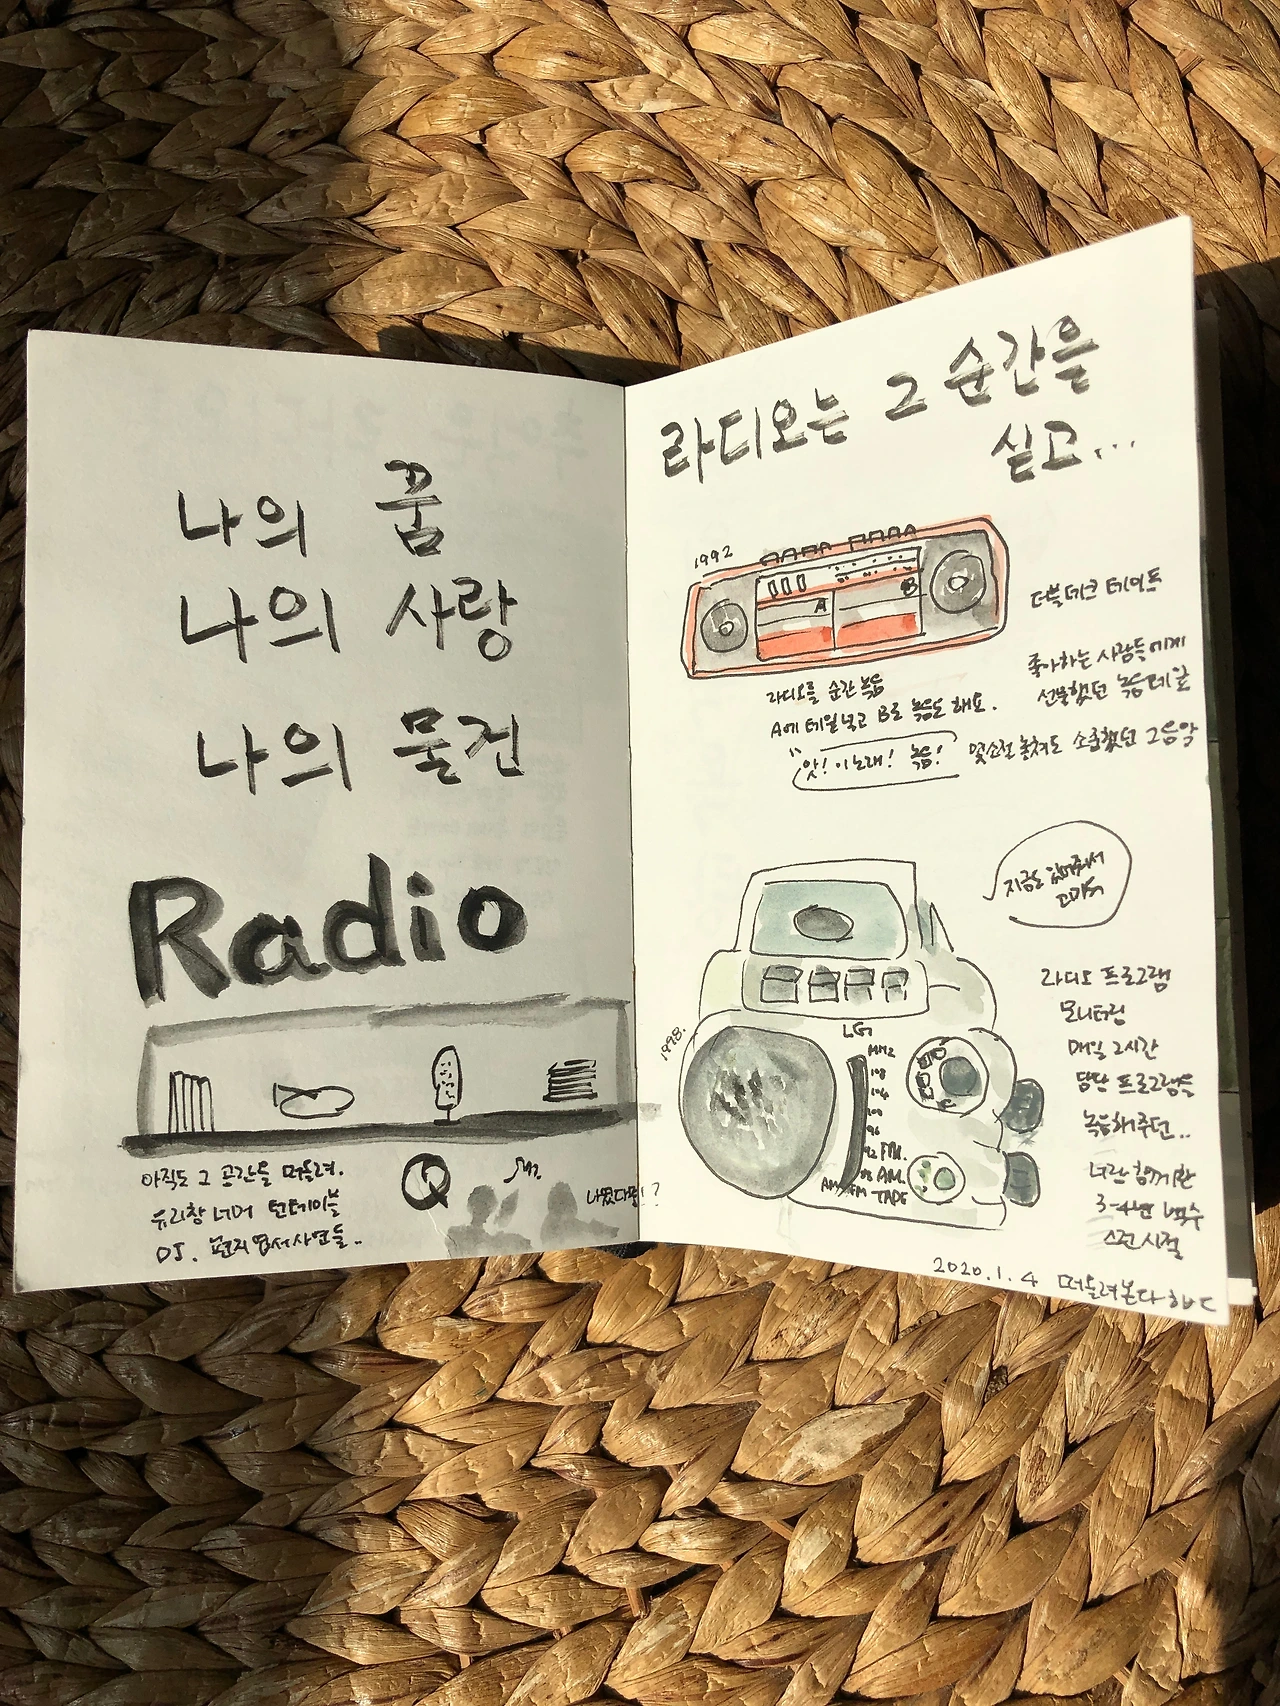 나의 꿈
나의 사랑
나의 물건
Radio
아직도 그 공간을 떠올려.
유리창 너머 턴테이블
DJ. 편지 엽서 사연들..
Q
라디오는 그 순간을
싣고...
1992
A
B
더블데크 테이프
라디오를 순간 녹음
A에 테잎 넣고 B로 녹음도 해요.
앗! 이 노래! 녹음!
좋아하는 사람들에게
선물했던 녹음테잎
몇소절 놓쳐도 소중했던 그 음악
지금도 있어줘서
고마워
1998.
LG
MHZ
108
104
100
96
92 FM.
88 AM.
AM FM TAPE
라디오 프로그램
모니터링
매일 2시간
담당 프로그램을
녹음해주던..
너랑 함께한
3-4년 백수
2020.1.4 떠올려본다